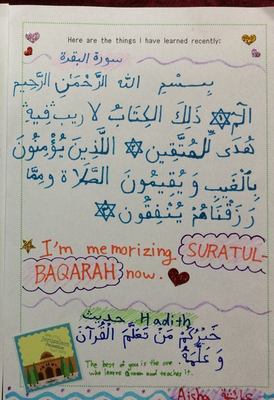 Here are the things I have learned recently:
سورة البقرة
بِسْمِ اللهِ الرَّحْمَنِ الرَّحِيمِ
الم ذَلِكَ الْكِتَابُ لَا رَيْبَ فِيهِ
هُدًى لِّلْمُتَّقِينَ اللَّذِينَ يُؤْمِنُونَ
بِالْغَيْبِ وَيُقِيمُونَ الصَّلَاةَ وَمِمَّا
رَزَقْنَاهُمْ يُنْفِقُونَ
I'm memorizing SURATUL-
BAQARAH now.
Hadith حديث
خَيْرُكُمْ مَنْ تَعَلَّمَ الْقُرْآنَ
وَ عَلَّمَهُ
The best of you is the one
who learns Quran and teaches it.
Jerusalem
Aisha عائشة